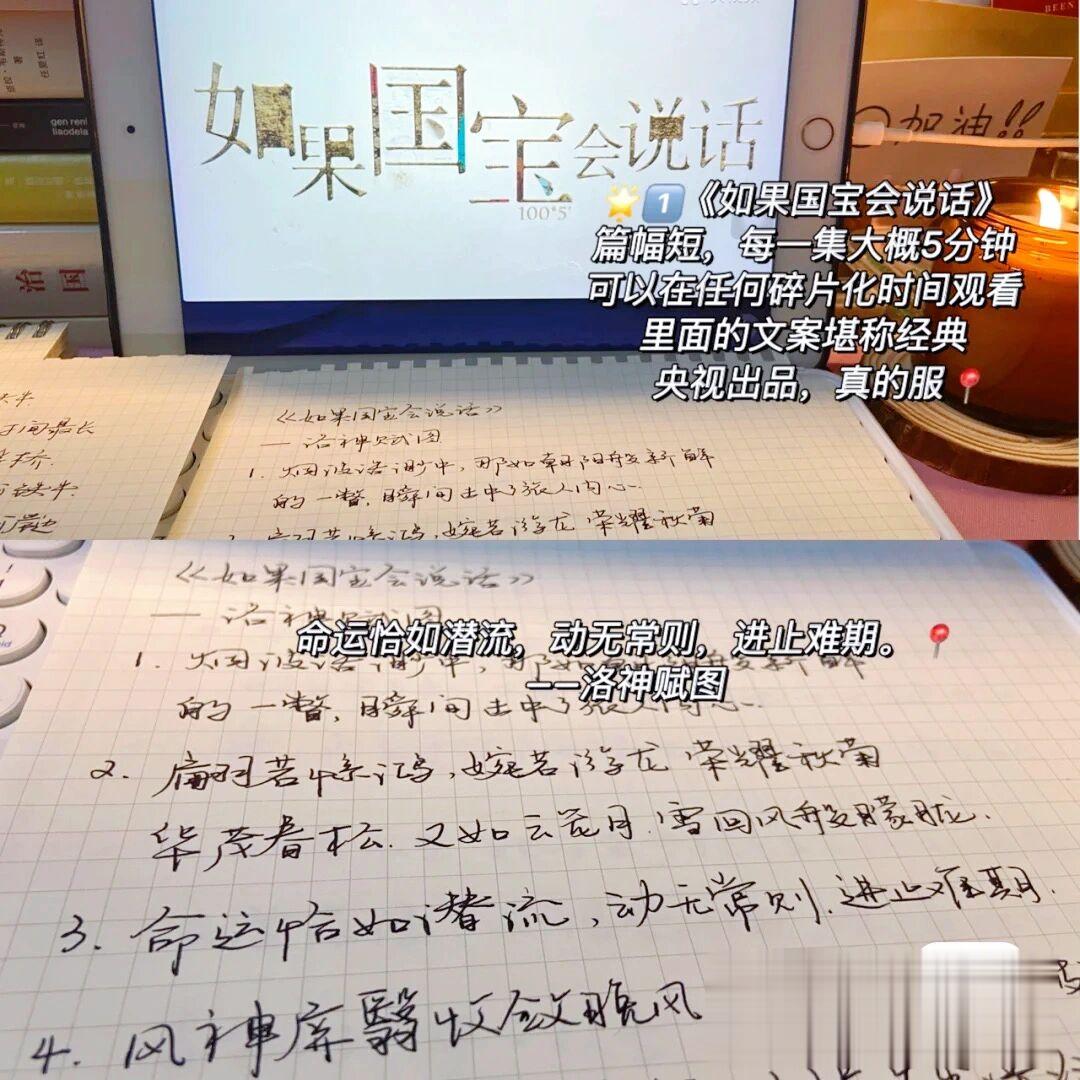 gen renl
liaodela
治国
如果国宝会说话
100*5'
加油!!
BEEN
🌟1️⃣《如果国宝会说话》
篇幅短，每一集大概5分钟
可以在任何碎片化时间观看
里面的文案堪称经典
央视出品，真的服📍
《如果国宝会说话》
— 洛神赋图
1. 烟波浩渺中，那如朝阳般新鲜
的一瞥，瞬间击中了旅人内心.
翩羽若惊鸿，婉若游龙 荣耀秋菊
《如果国宝会说话》
— 洛神赋图
命运恰如潜流，动无常则，进止难期。📍
——洛神赋图
1. 烟波浩渺中，那如朝阳般新鲜
的一瞥，瞬间击中了旅人内心..
2. 翩羽若惊鸿，婉若游龙 荣耀秋菊
华茂春松. 又如云蔽月. 雪回风般朦胧.
3. 命运恰如潜流，动无常则. 进止难期.
4. 风神屏翳收敛晚风